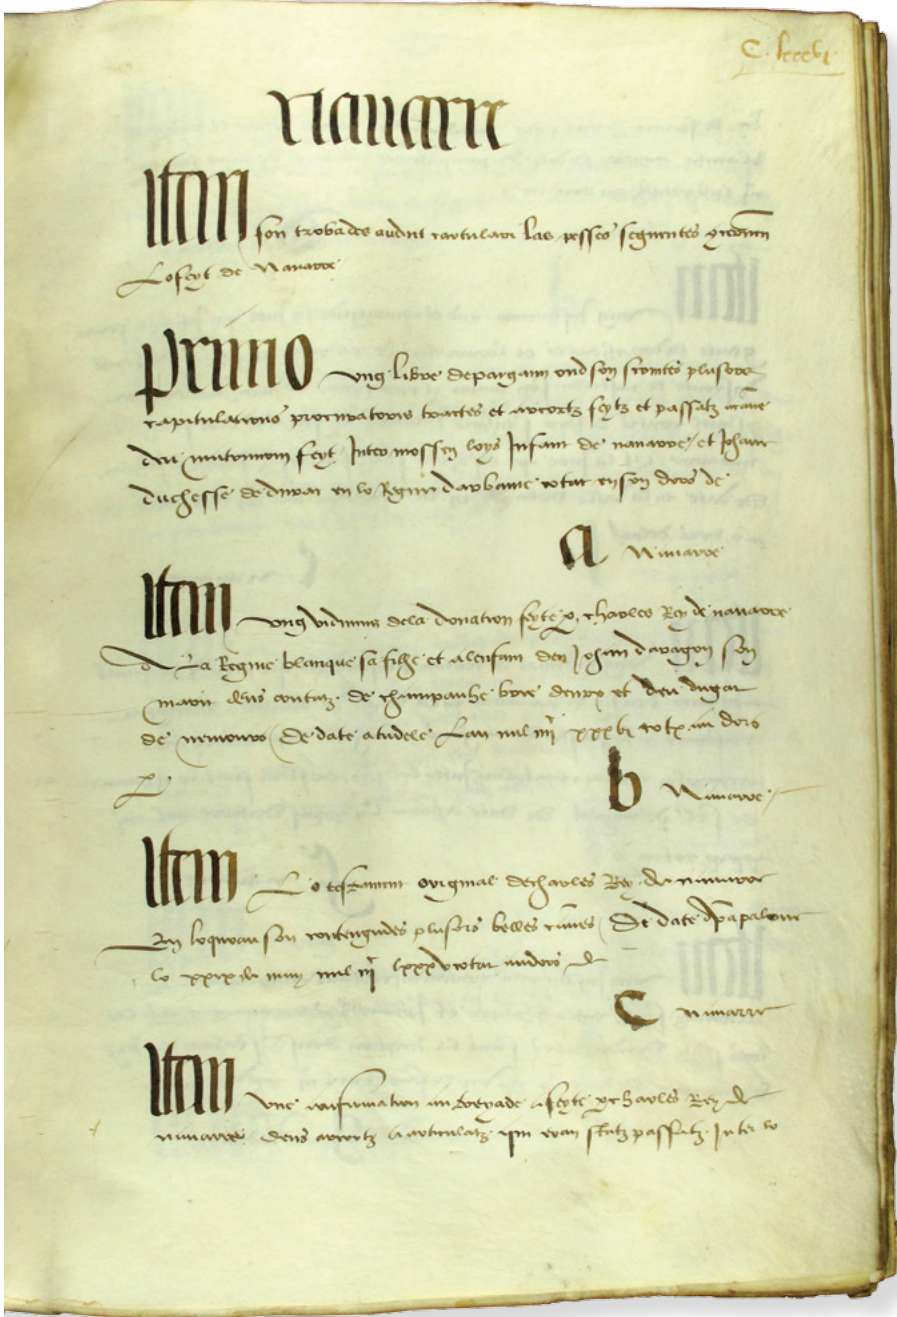 C. lxxxvi
Navarre
Item son trobades audit cartulari las pesses seguentes
Lo feyt de Navarre
Primo ung libre de pargami ond son scriutes plusors
capitulations procuratoris tractes et accortz feytz et passatz
deu matrimoni feyt Inter mossen loys Infant de navarre et Johane
duchesse de duras en lo Regne d'arbanie cotat en son dors de
A Navarre
Item ung vidimus de la donation feyte p. charles Rey de navarre
A La Regine blanque sa filhe et a l'enfant don Johan d'aragon son
marit deus contatz de champanhe brie et deu dugat
de nemours De date a tudele L'an mil iiii xxx cotx au dors
p
b Navarre
Item Lo testament original de charles Rey de navarre
En loquoau son contengudes plusors belles De date
lo xxix de may mil iii lxxxv cotat au dors de
C Navarre
Item une confirmation feyte p charles Rey de
navarre deus accortz et articulatz qui eran statz passatz Inter lo